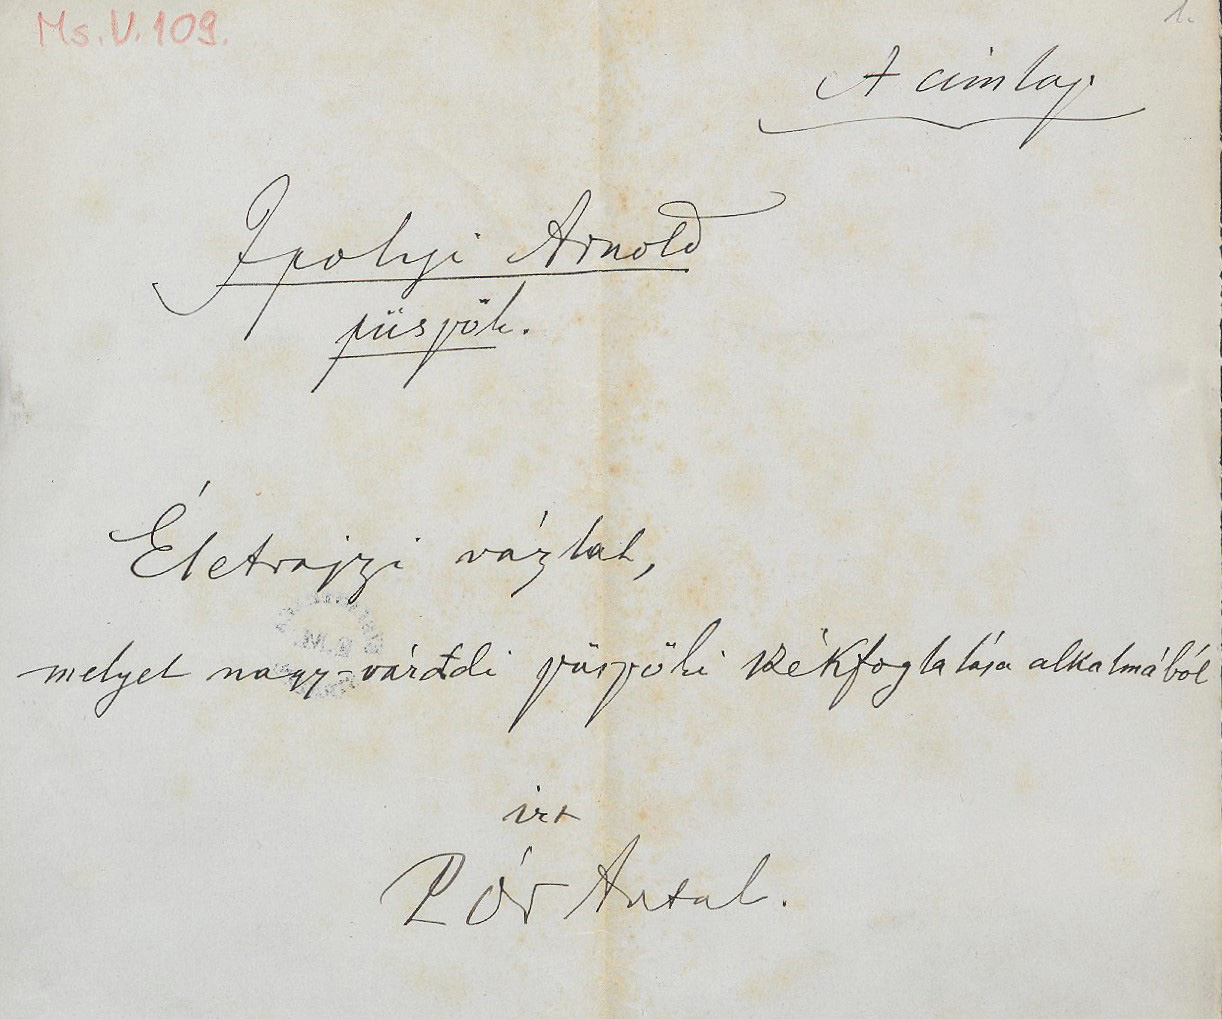 Ms. V. 109.
1.
A cimlap.
Ipolyi Arnold
püspök.
Életrajzi vázlat,
melyet nagy-váradi püspöki székfoglalása alkalmából
irt
Pór Antal.